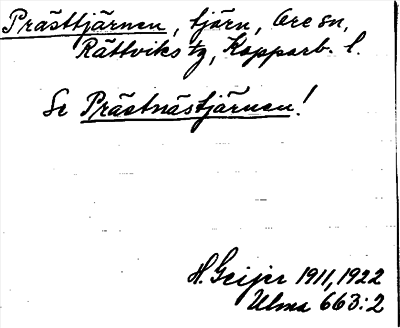 Prästtjärnen, tjärn, Ore sn,
Rättviks tg, Kopparb. l.
Se Prästnästjärnen!
H. Geijer 1911, 1922
Ulma 663:2